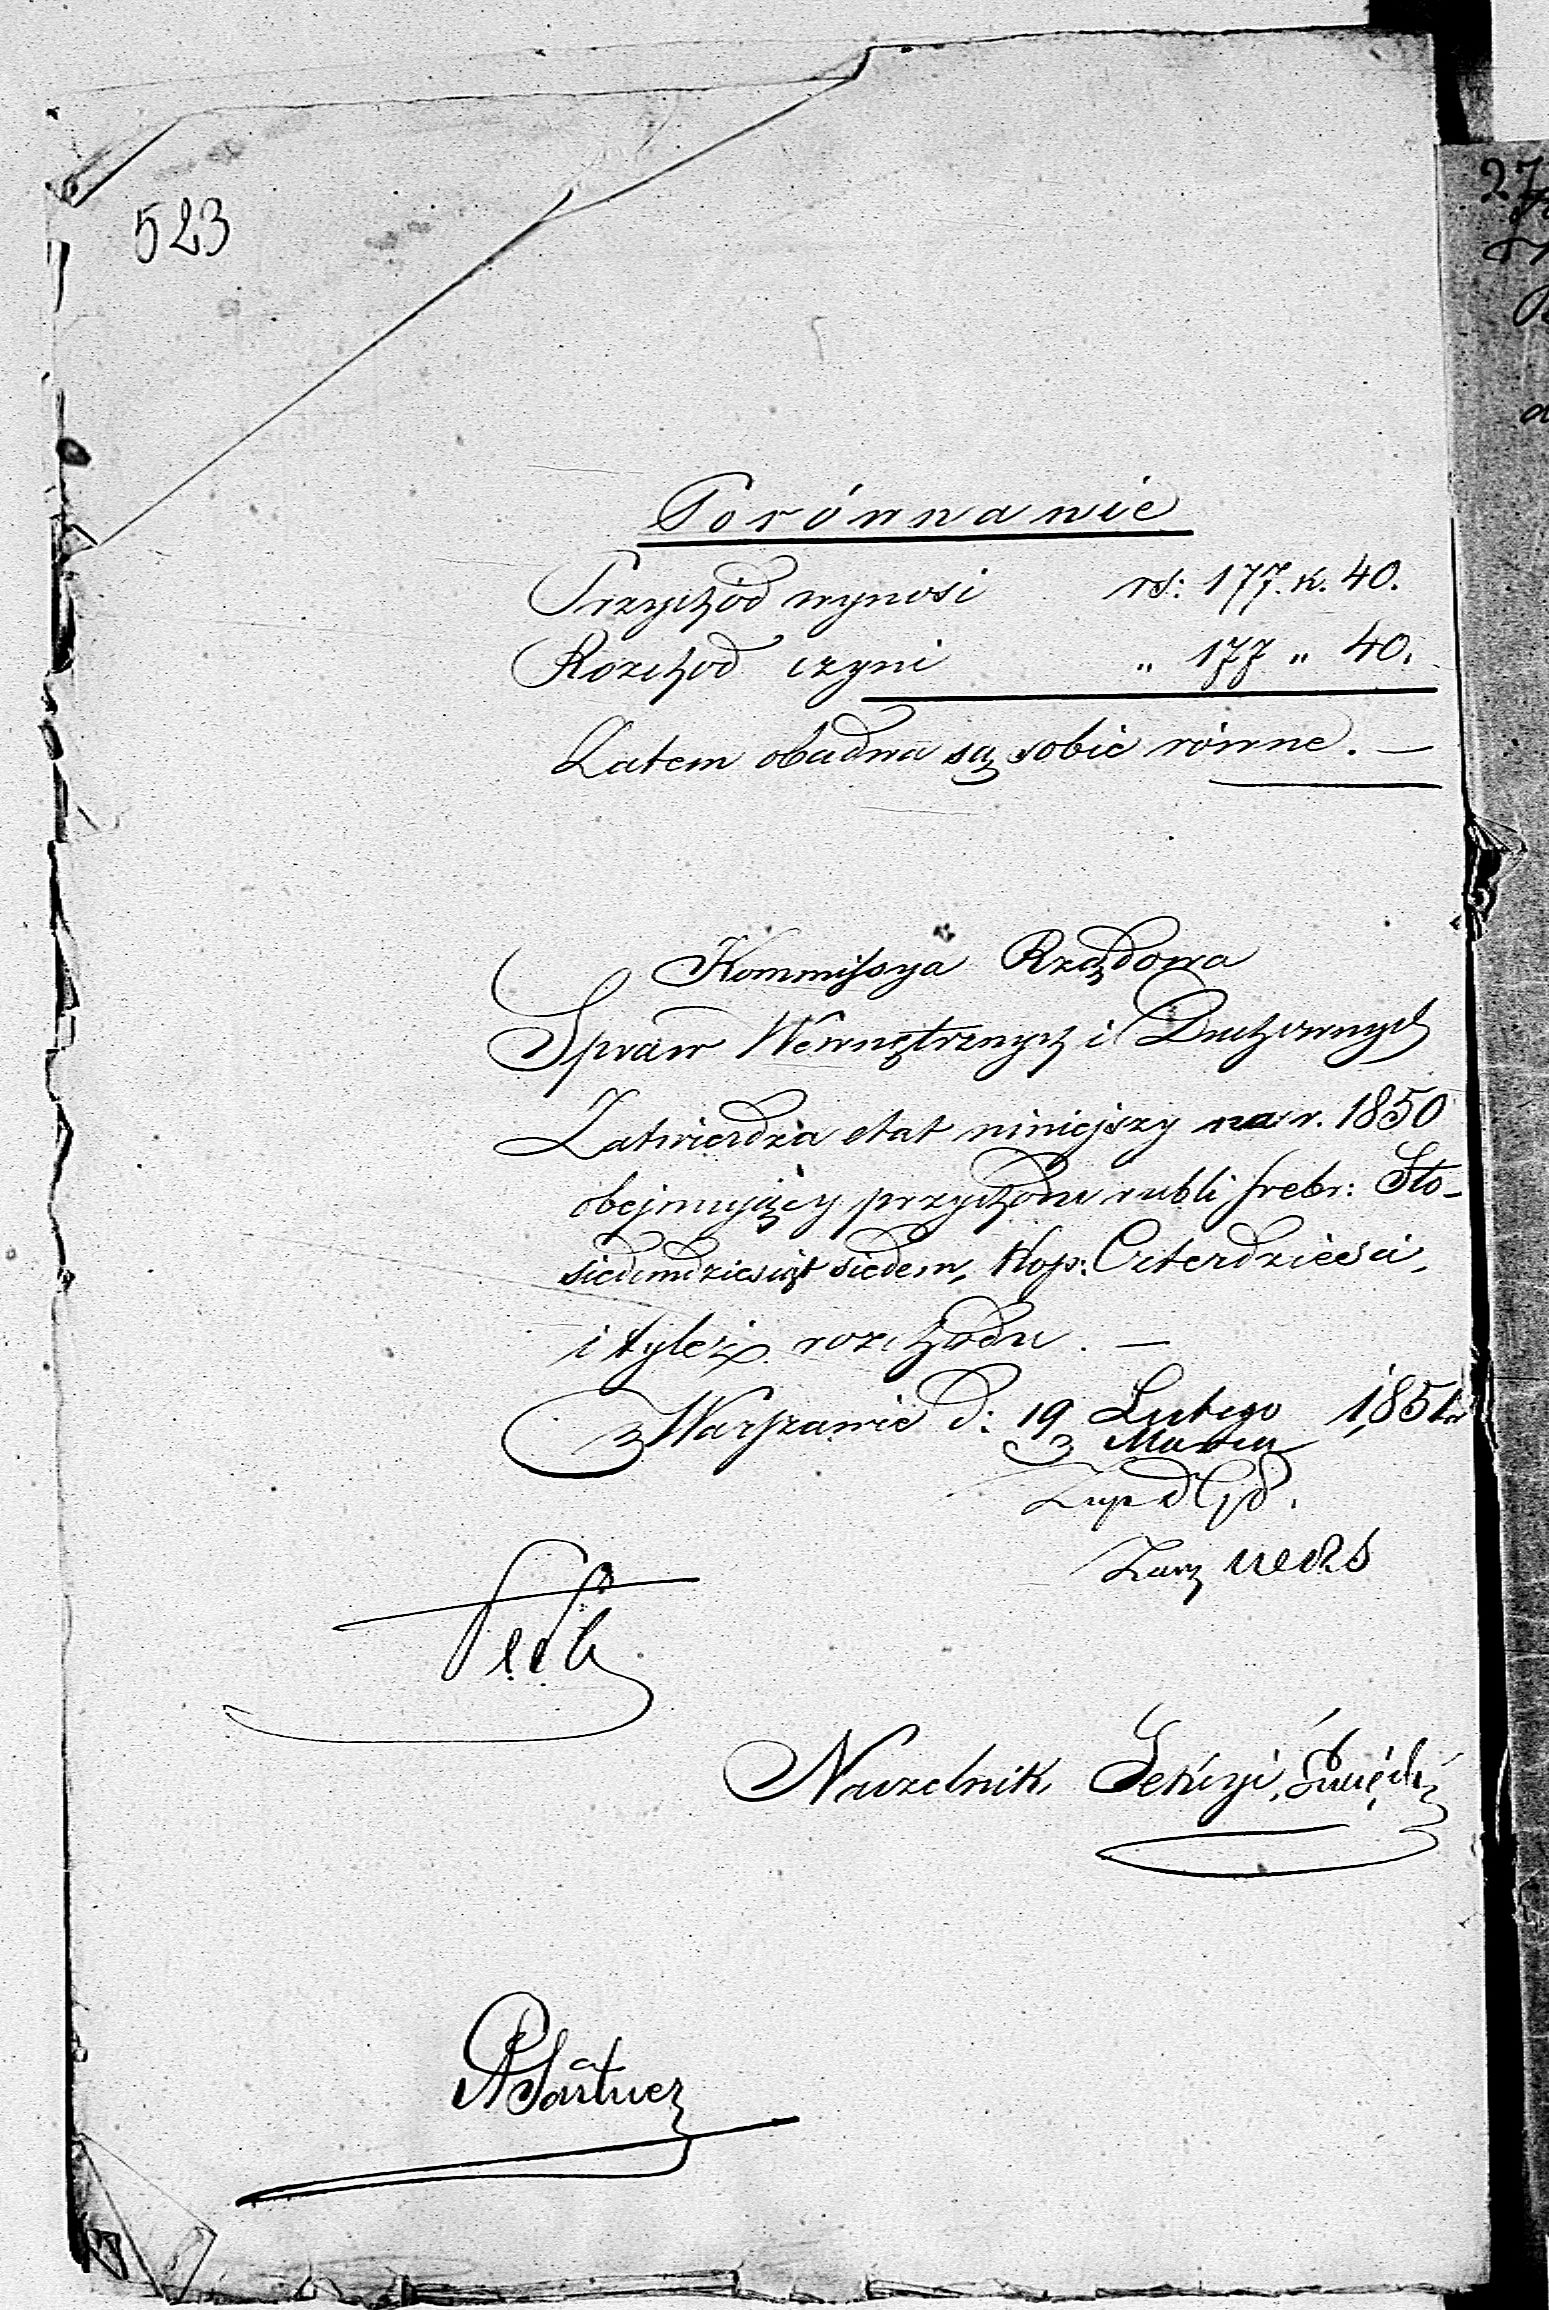 523
Porównanie
Przychód wynosi rs: 177. k. 40.
Rozchód czyni „ 177 „ 40.
Zatem obadwa są sobie równe. —
Kommissya Rządowa
Spraw Wewnętrznych i Duchownych
Zatwierdza etat niniejszy na r. 1850
obejmujący przychodu rubli srebr: Sto-
siedmdziesiąt siedem, kop: Czterdzieści,
i tyleż rozchodu. —
w Warszawie d: 19 Lutego 1851 r
3 Marca
Naczelnik Sekcyi, Święcki